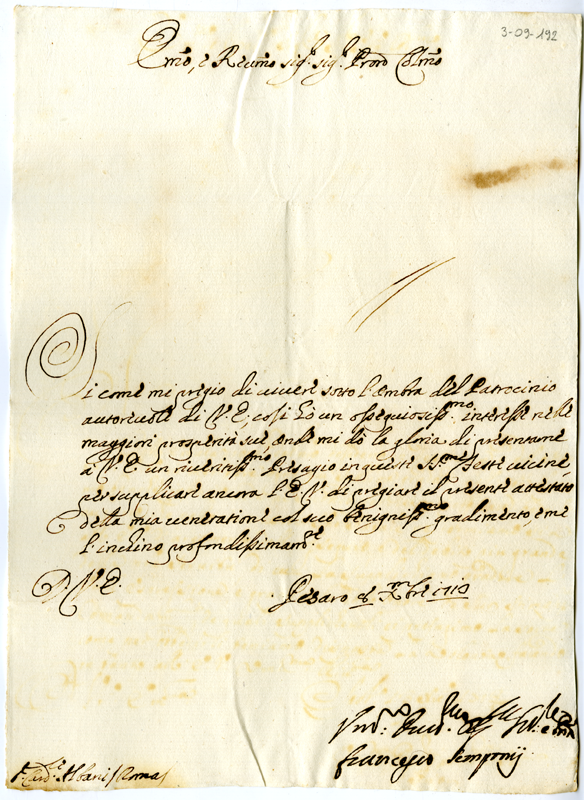 3-09-192
Emo, e Revmo Sigr. Sigr. Pron Colmo
Si come mi pregio di vivere sotto l'ombra del Patrocinio
autorevole di V.E, così hò un ossequiosissmo. interesse nelle
maggiori prosperità sue onde mi dò la gloria di presentarne
à V.E. un riveritissmo. Presagio in queste SSme Feste vicine,
per supplicare ancora l'E.V. di pregiare il presente attestato
della mia veneratione col suo benignissmo. gradimento, e me
l'inchino profondissimamte.
D.V.E.
Pesaro Xmbre 1710
Francesco
Card.le Albani / Roma /